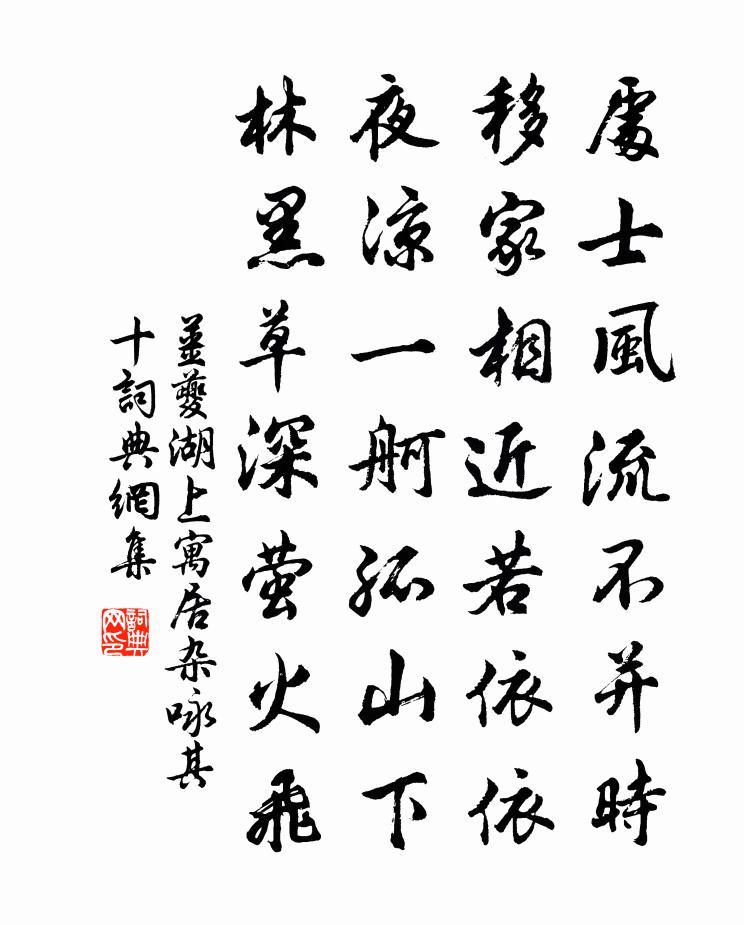 處士風流不并時
移家相近若依依
夜涼一舸孤山下
林黑草深萤火飛
姜夔湖上寓居杂咏其
十詞典網集
詞典
网印